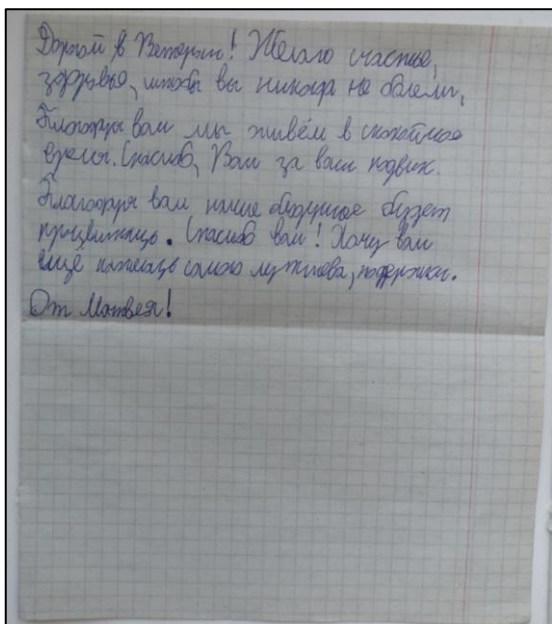 Дорогой в Ветеран! Желаю счастье,
здоровье, чтобы вы никогда не болели,
Благодаря вам мы живём в спокойное
время. Спасибо, Вам за ваш подвих.
Благодаря вам наше будущее будет
процветать. Спасибо вам! Хочу вам
ещё пожелать самого лучшева, поддержки.
От Матвея!